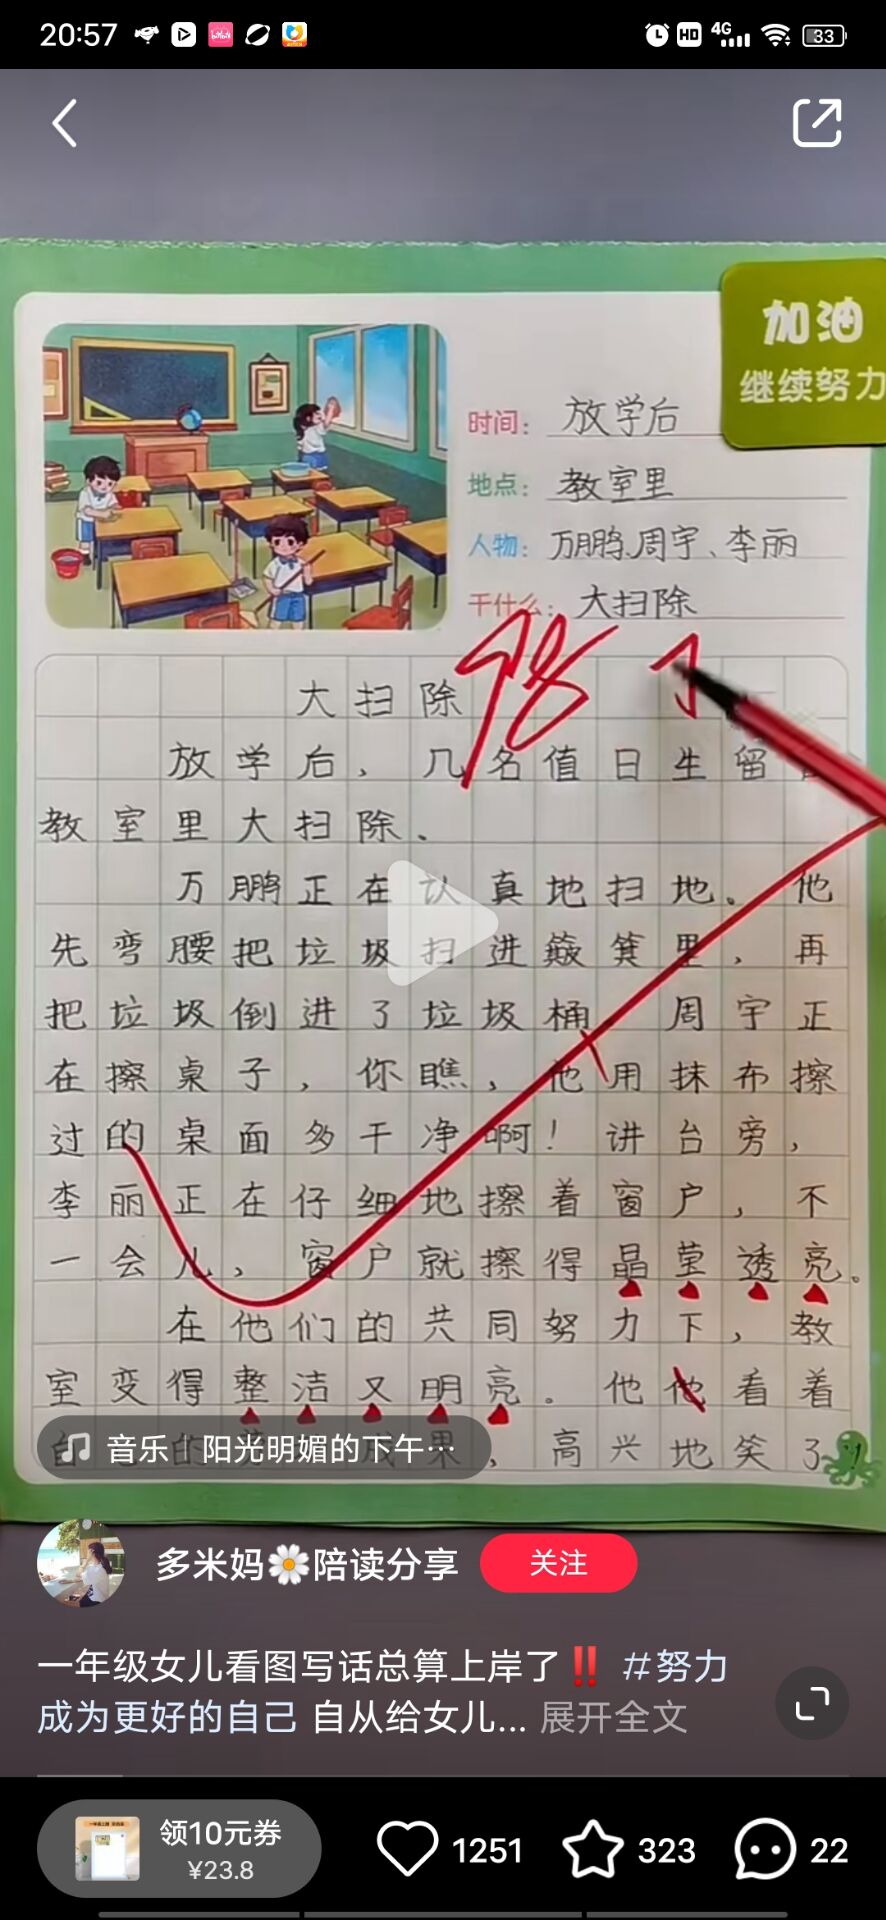 20:57
HD 4G 33
加油
继续努力
时间：放学后
地点：教室里
人物：万鹏、周宇、李丽
干什么：大扫除
98
大扫除
放学后，几名值日生留
教室里大扫除、
万鹏正在认真地扫地。他
先弯腰把垃圾扫进簸箕里，再
把垃圾倒进了垃圾桶。周宇正
在擦桌子，你瞧，他用抹布擦
过的桌面多干净啊！讲台旁，
李丽正在仔细地擦着窗户，不
一会儿，窗户就擦得晶莹透亮。
在他们的共同努力下，教
室变得整洁又明亮。他他看着
成果，高兴地笑了
音乐｜阳光明媚的下午…
多米妈🌼陪读分享
关注
一年级女儿看图写话总算上岸了‼️ #努力
成为更好的自己 自从给女儿... 展开全文
领10元券
¥23.8
1251
323
22